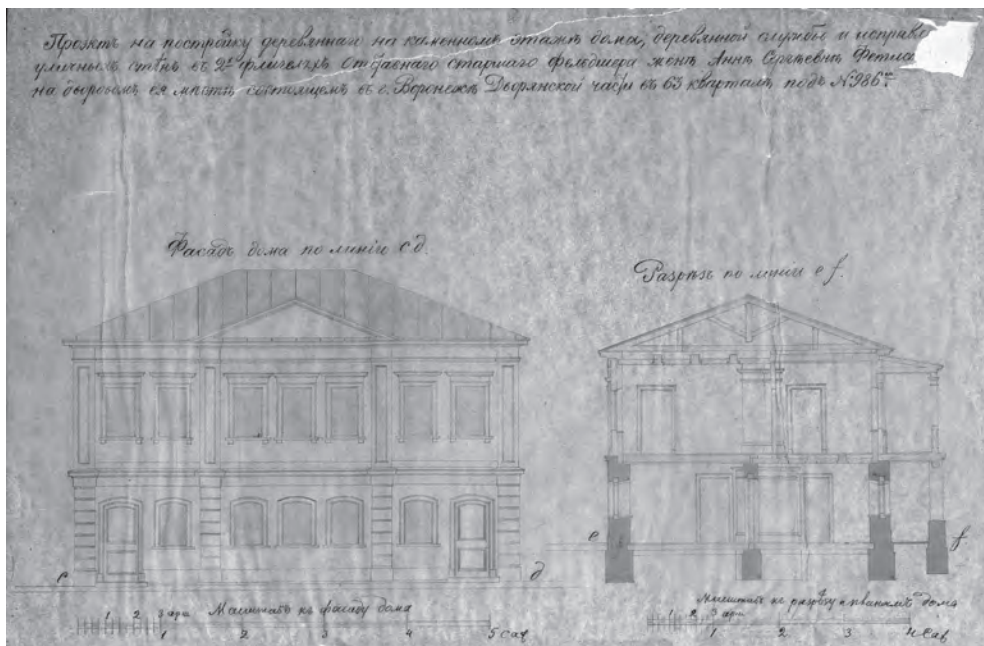 Проэктъ на постройку деревяннаго на каменномъ этажѣ дома, деревянной службы и исправ
уличныхъ стѣнъ въ 2хъ флигеляхъ Отставнаго старшаго фельдшера жены Анны Сергѣевны
на дворовомъ ея мѣстѣ состоящемъ въ г. Воронежѣ Дворянской части въ 63 кварталѣ подъ № 986мъ
Фасадъ дома по линіи c д.
Разрѣзъ по линіи e f.
e f.
c д
1 2 3 арш. Масштабъ къ фасаду дома
1 2 3 4 5 Саж
Масштабъ къ разрѣзу и планамъ дома
1 2 3 арш.
1 2 3 4 Саж